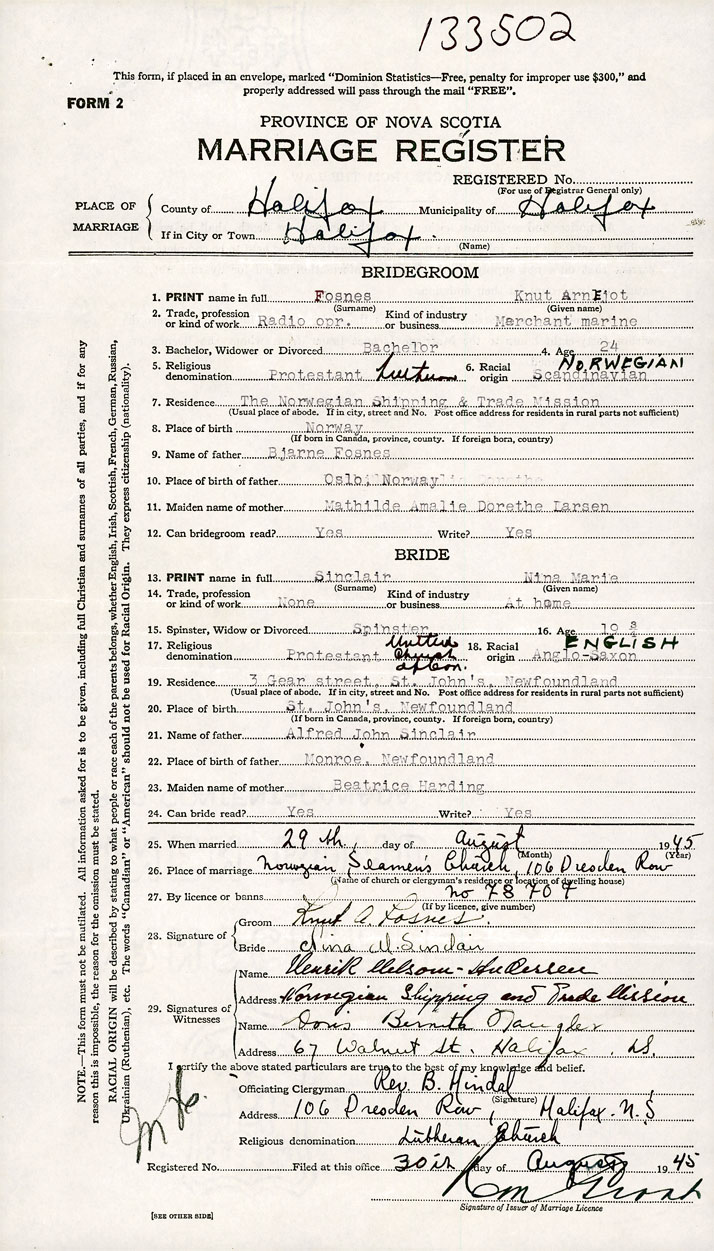 133502
This form, if placed in an envelope, marked “Dominion Statistics—Free, penalty for improper use $300,” and
properly addressed will pass through the mail “FREE”.
FORM 2
PROVINCE OF NOVA SCOTIA
MARRIAGE REGISTER
REGISTERED No.
(For use of Registrar General only)
PLACE OF MARRIAGE
County of Halifax Municipality of Halifax
If in City or Town Halifax.
(Name)
BRIDEGROOM
1. PRINT name in full Fosnes Knut Arnljot
(Surname) (Given name)
2. Trade, profession or kind of work Radio opr. Kind of industry or business Merchant marine
3. Bachelor, Widower or Divorced Bachelor 4. Age 24
5. Religious denomination Protestant Lutheran 6. Racial origin Scandinavian NORWEGIAN
7. Residence The Norwegian Shipping & Trade Mission
(Usual place of abode. If in city, street and No. Post office address for residents in rural parts not sufficient)
8. Place of birth Norway
(If born in Canada, province, county. If foreign born, country)
9. Name of father Bjarne Fosnes
10. Place of birth of father Oslo, Norway
11. Maiden name of mother Mathilde Amalie Dorethe Larsen
12. Can bridegroom read? Yes Write? Yes
BRIDE
13. PRINT name in full Sinclair Nina Marie
(Surname) (Given name)
14. Trade, profession or kind of work None Kind of industry or business At home
15. Spinster, Widow or Divorced Spinster 16. Age 19
17. Religious denomination Protestant United Church of Can. 18. Racial origin Anglo-Saxon ENGLISH
19. Residence 3 Gear street, St. John's, Newfoundland
(Usual place of abode. If in city, street and No. Post office address for residents in rural parts not sufficient)
20. Place of birth St. John's, Newfoundland
(If born in Canada, province, county. If foreign born, country)
21. Name of father Alfred John Sinclair
22. Place of birth of father Monroe, Newfoundland
23. Maiden name of mother Beatrice Harding
24. Can bride read? Yes Write? Yes
25. When married 29th, day of August 1945
(Month) (Year)
26. Place of marriage Norwegian Seamen's Church, 106 Dresden Row
(Name of church or clergyman's residence or location of dwelling house)
27. By licence or banns No 78707
(If by licence, give number)
28. Signature of
Groom Knut A. Fosnes.
Bride Nina M. Sinclair
29. Signatures of Witnesses
Name Henrik Andersen
Address Norwegian Shipping and Trade Mission
Name Doris Naugler
Address 67 Walnut St. Halifax. N.S.
I certify the above stated particulars are true to the best of my knowledge and belief.
Officiating Clergyman Rev. B. Hindal
(Signature)
Address 106 Dresden Row, Halifax. N.S
Religious denomination Lutheran Church
Registered No. Filed at this office 30th day of August 1945
Signature of Issuer of Marriage Licence
[SEE OTHER SIDE]
NOTE.—This form must not be mutilated. All information asked for is to be given, including full Christian and surnames of all parties, and if for any
reason this is impossible, the reason for the omission must be stated.
RACIAL ORIGIN will be described by stating to what people or race each of the parents belongs, whether English, Irish, Scottish, French, German, Russian,
Ukrainian (Ruthenian), etc. The words “Canadian” or “American” should not be used for Racial Origin. They express citizenship (nationality).